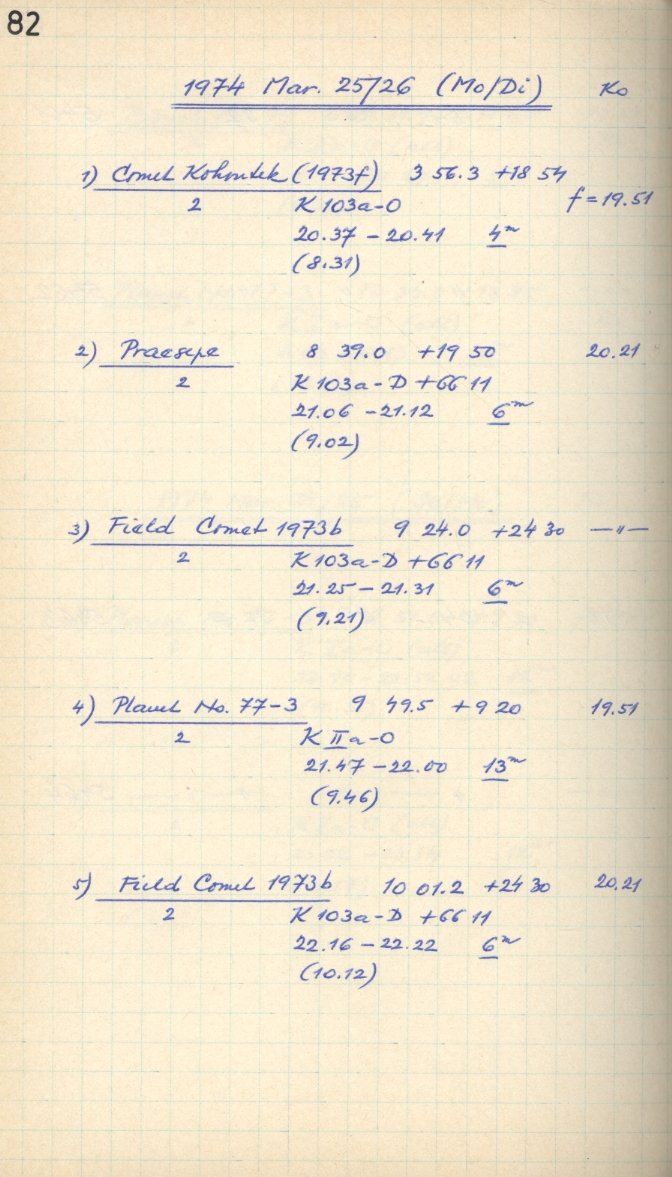 82
1974 Mar. 25/26 (Mo/Di) Ko
1) Comet Kohoutek (1973f) 3 56.3 +18 54
2 K 103a-O f = 19.51
20.37 – 20.41 4m
(8.31)
2) Praesepe 8 39.0 +19 50 20.21
2 K 103a-D + GG 11
21.06 – 21.12 6m
(9.02)
3) Field Comet 1973b 9 24.0 +24 30 —"—
2 K 103a-D + GG 11
21.25 – 21.31 6m
(9.21)
4) Planet No. 77-3 9 49.5 +9 20 19.51
2 K IIa-O
21.47 – 22.00 13m
(9.46)
5) Field Comet 1973b 10 01.2 +24 30 20.21
2 K 103a-D + GG 11
22.16 – 22.22 6m
(10.12)